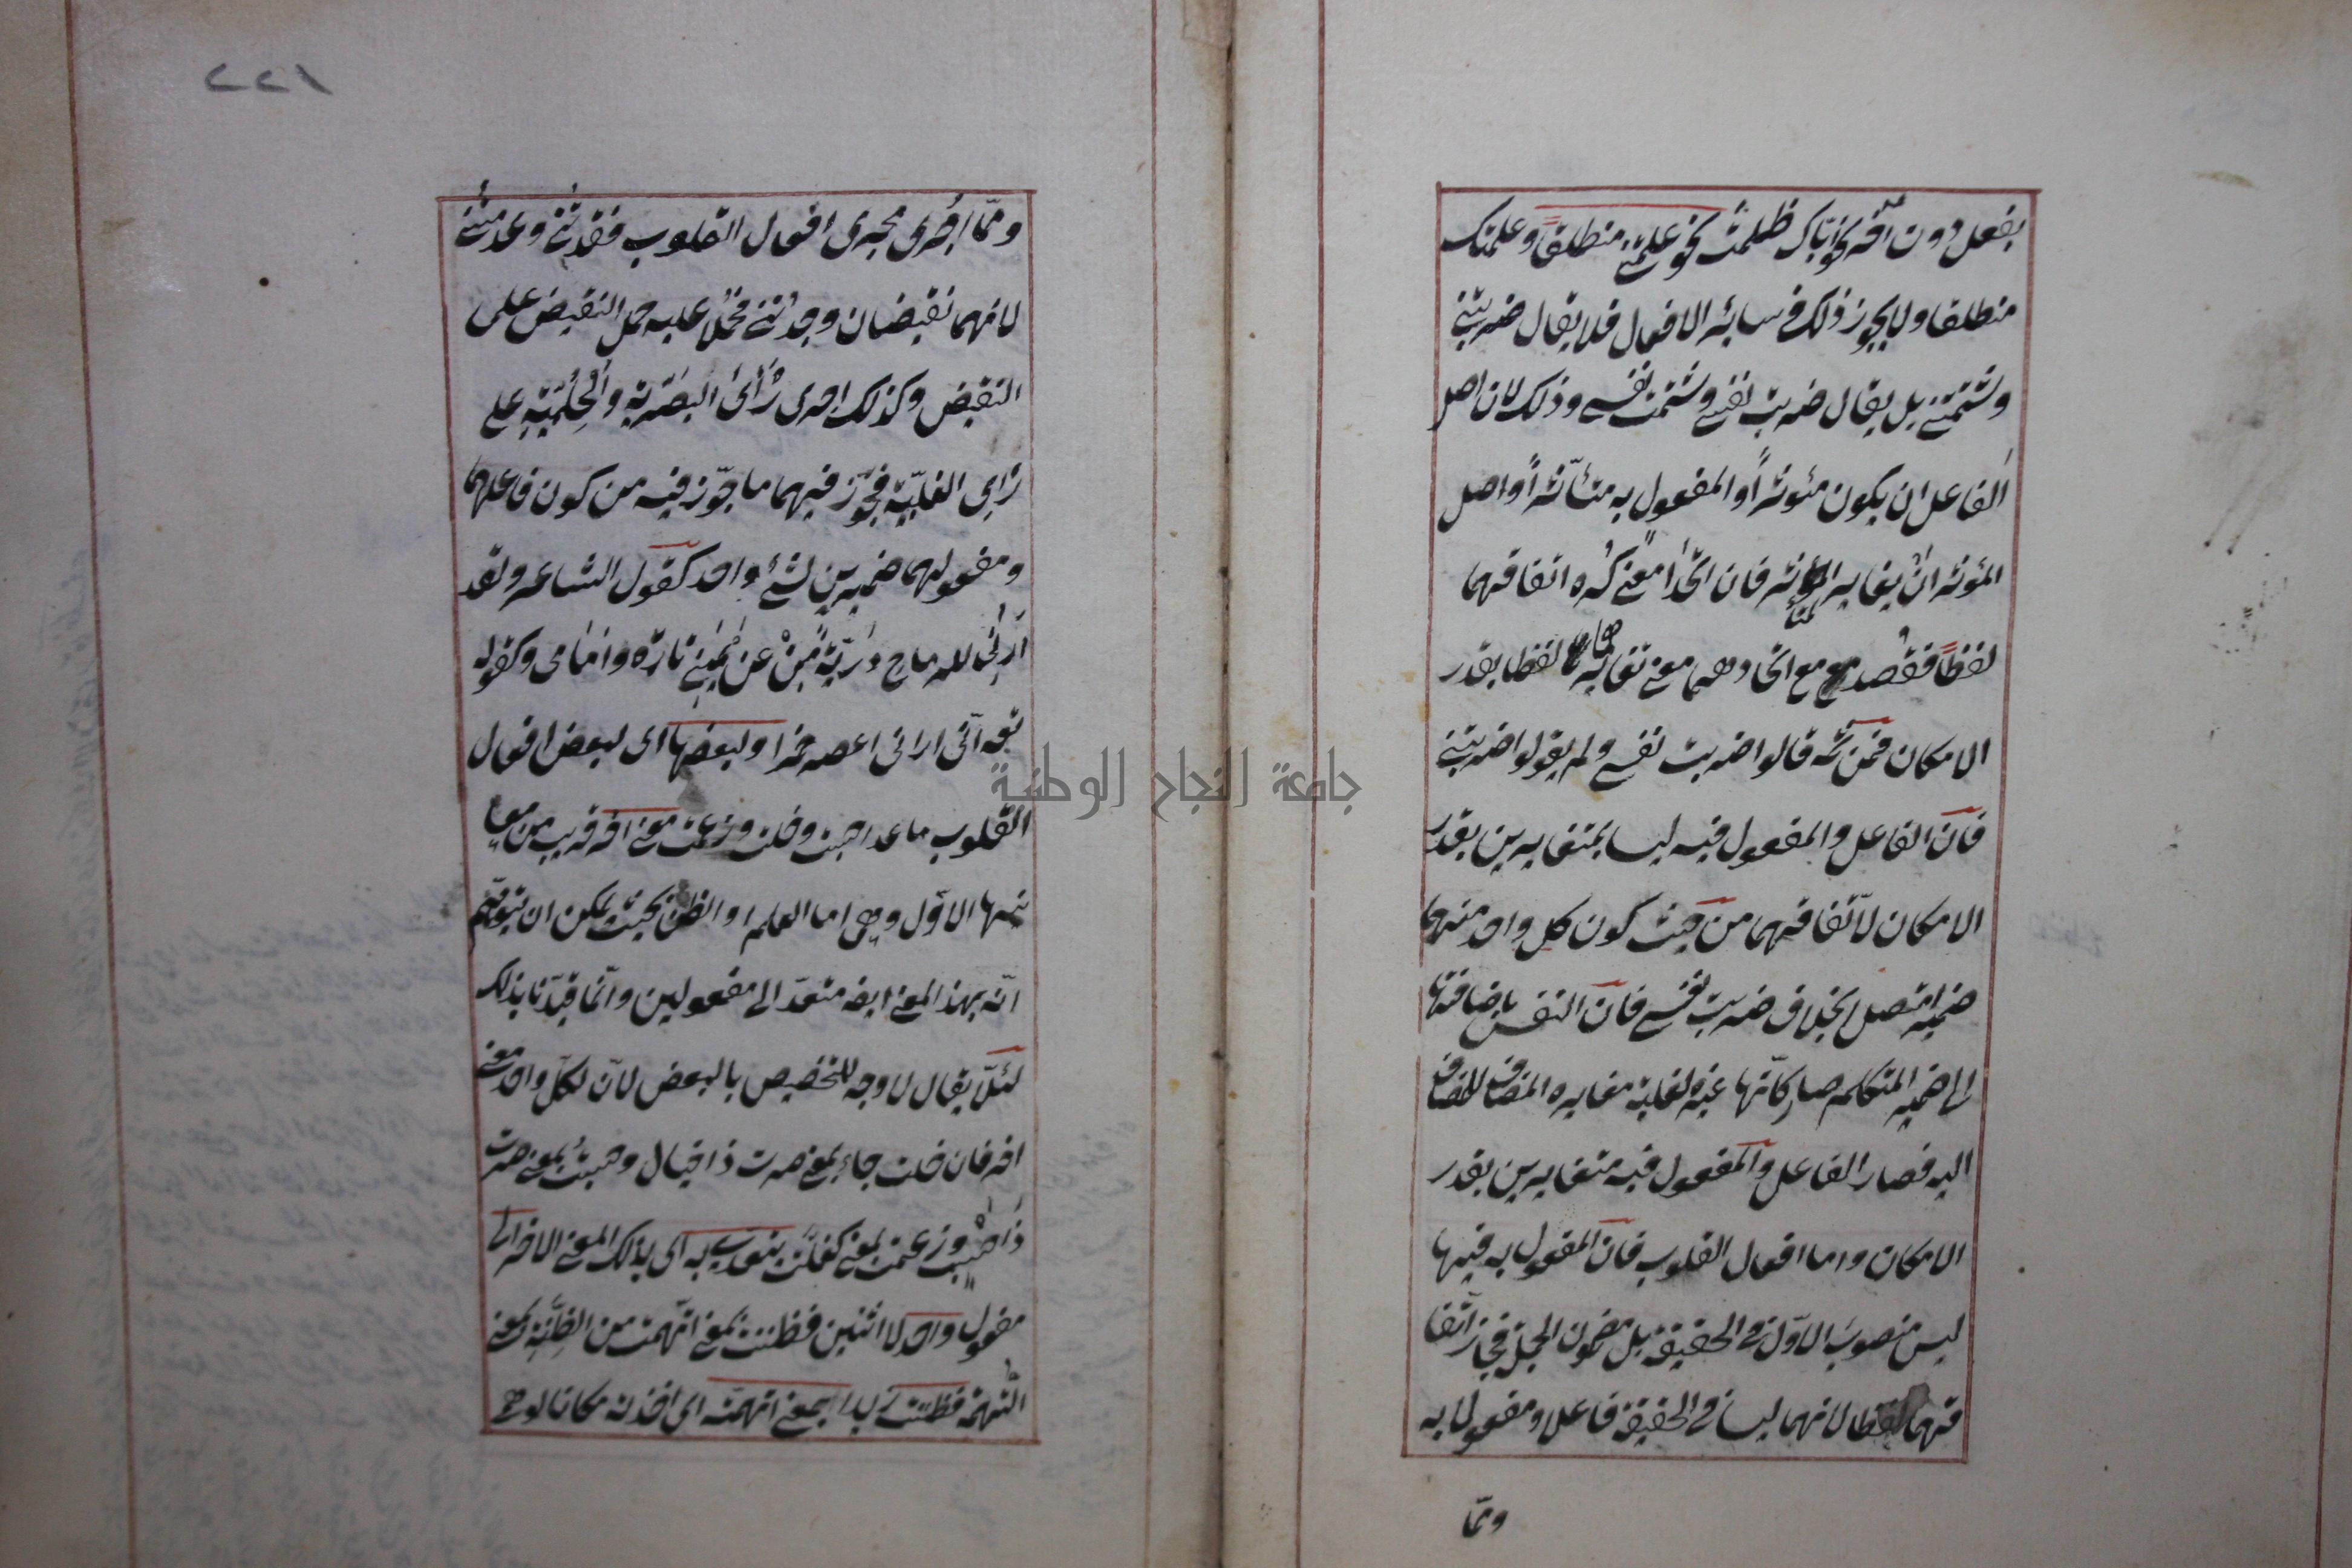 بفعل دون آخر نحو اياك ظلمت نحو علمتنى منطلقا وعلمتك
منطلقا ولا يجوز ذلك فى سائر الافعال فلا يقال ضربتنى
وشتمتنى بل يقال ضربت نفسى وشتمت نفسى وذلك لان اصل
الفاعل ان يكون مؤثرا والمفعول به متأثرا واصل
المؤثر ان يغاير المتأثر فان اتحدا معنى كره اتفاقهما
لفظا فقصد مع اتحادهما معنى تغايرهما لفظا بقدر
الامكان فمن ثمه قالوا ضربت نفسى ولم يقولوا ضربتنى
فان الفاعل والمفعول فيه ليسا بمتغايرين بقدر
الامكان لاتفاقهما من حيث كون كل واحد منهما
ضميرا متصلا بخلاف ضربت نفسى فان النفس باضافتها
الى ضمير المتكلم صار كانها غيره لغلبة مغايرة المضاف للمضاف
اليه فصار الفاعل والمفعول فيه متغايرين بقدر
الامكان واما افعال القلوب فان المفعول به فيها
ليس منصوب الاول فى الحقيقة بل مضمون الجملة فجاز اتفا
قهما لفظا لانهما ليسا فى الحقيقة فاعلا ومفعولا به
ومما
٢٢١
ومما اجرى مجرى افعال القلوب فقدتنى وعدمتنى
لانهما نقيضان وجدتنى فحملا عليه حمل النقيض على
النقيض وكذلك اجرى رأى البصرية والحلمية على
رأى القلبية فجوز فيهما ما جوز فيه من كون فاعلهما
ومفعولهما ضميرين لشئ واحد كقول الشاعر ولقد
ارانى للرماح دريئة من عن يمينى تارة وامامى وكقوله
تعه انى ارانى اعصر خمرا ولبعضها اى لبعض افعال
القلوب ما عدا حسبت وخلت وزعمت معنى آخر قريب من معا
نيها الاول وهى اما العلم او الظن بحيث يمكن ان يتوهم
انه بهذا المعنى ايضه متعد الى مفعولين وانما قيدنا بذلك
لئلا يقال لا وجه للتخصيص بالبعض لان لكل واحد معنى
آخر فان خلت جاء بمعنى صرت ذا خيال وحسبت بمعنى صرت
ذا حسب وزعمت بمعنى كفلت يتعدى به اى بذلك المعنى الآخر الى
مفعول واحد لا اثنين فظننت بمعنى اتهمت من الظنة بمعنى
التهمة فظننت زيدا بمعنى اتهمته اى اخذته مكانا لوهمى
جامعة النجاح الوطنية